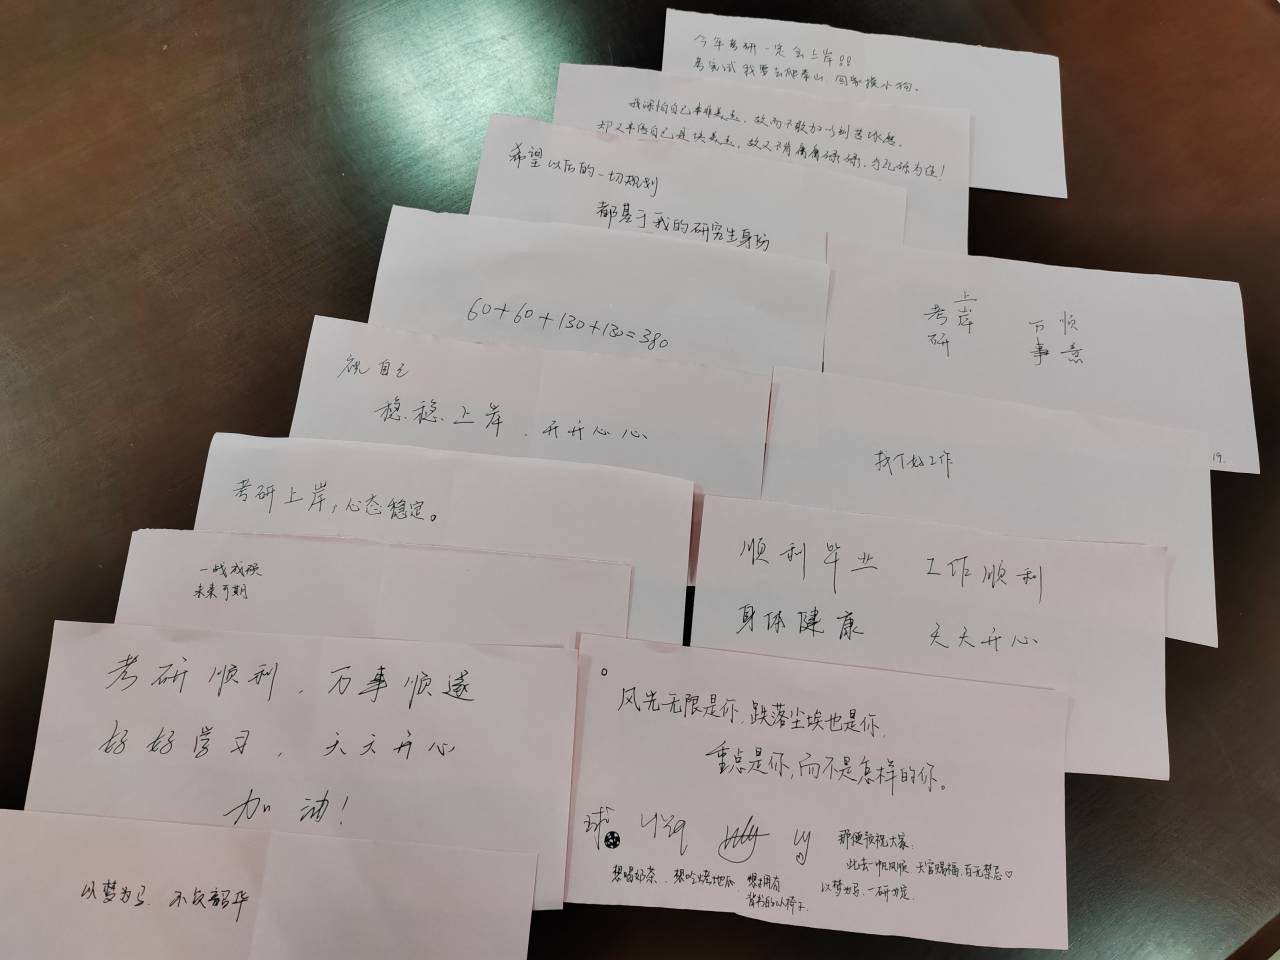 今年考研一定会上岸!!
考完试我要去爬泰山 回家摸小狗。
我深怕自己本非美玉，故而不敢加以刻苦琢磨，
却又半信自己是块美玉，故又不肯庸庸碌碌，与瓦砾为伍!
希望以后的一切规划
都基于我的研究生身份
60+60+130+130=380
祝自己
稳稳上岸，开开心心
考研上岸，心态稳定。
一战成硕
未来可期
考研顺利，万事顺遂
好好学习，天天开心
加油!
以梦为马，不负韶华
考研
上岸
万事
顺意
19.
找个好工作
顺利毕业 工作顺利
身体健康 天天开心
风光无限是你，跌落尘埃也是你，
重点是你，而不是怎样的你。
那便预祝大家
此去一帆风顺，天官赐福，百无禁忌♡
以梦为马，一研为定
想喝奶茶、想吃烤地瓜、想拥有
背书的小椅子